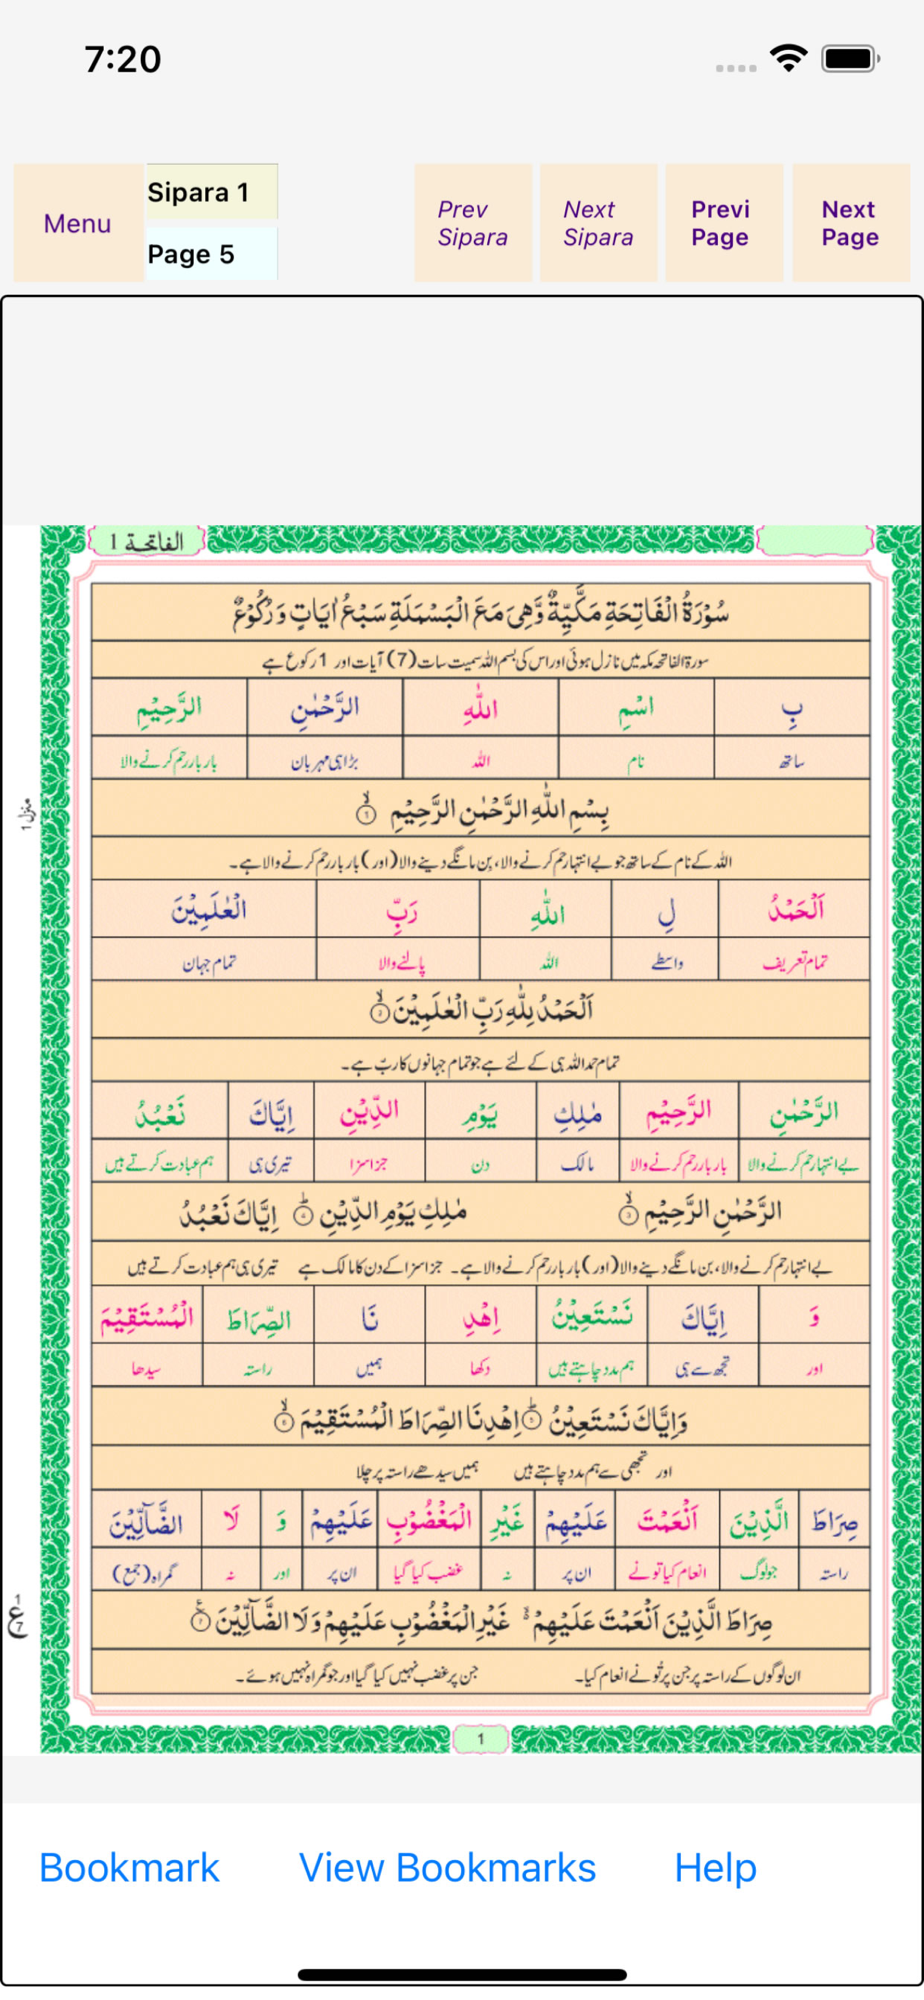 7:20
Menu
Sipara 1
Page 5
Prev Sipara
Next Sipara
Previ Page
Next Page
الفاتحة 1
سُوْرَةُ الْفَاتِحَةِ مَكِّيَّةٌ وَّهِيَ مَعَ الْبَسْمَلَةِ سَبْعُ اٰيَاتٍ وَّرُكُوْعٌ
سورۃ الفاتحہ مکہ میں نازل ہوئی اور اس کی بسم اللہ سمیت سات (7) آیات اور 1 رکوع ہے
بِ اسْمِ اللّٰهِ الرَّحْمٰنِ الرَّحِيْمِ
ساتھ نام اللہ بڑا ہی مہربان بار بار رحم کرنے والا
منزل 1
بِسْمِ اللّٰهِ الرَّحْمٰنِ الرَّحِيْمِ ۝۱
اللہ کے نام کے ساتھ جو بے انتہا رحم کرنے والا، بن مانگے دینے والا (اور) بار بار رحم کرنے والا ہے۔
اَلْحَمْدُ لِ اللّٰهِ رَبِّ الْعٰلَمِيْنَ
تمام تعریف واسطے اللہ پالنے والا تمام جہان
اَلْحَمْدُ لِلّٰهِ رَبِّ الْعٰلَمِيْنَ ۝۲
تمام حمد اللہ ہی کے لئے ہے جو تمام جہانوں کا ربّ ہے۔
الرَّحْمٰنِ الرَّحِيْمِ مٰلِكِ يَوْمِ الدِّيْنِ اِيَّاكَ نَعْبُدُ
بے انتہا رحم کرنے والا بار بار رحم کرنے والا مالک دن جزا سزا تیری ہی ہم عبادت کرتے ہیں
الرَّحْمٰنِ الرَّحِيْمِ ۝۳ مٰلِكِ يَوْمِ الدِّيْنِ ۝۴ اِيَّاكَ نَعْبُدُ
بے انتہا رحم کرنے والا، بن مانگے دینے والا (اور) بار بار رحم کرنے والا ہے۔ جزا سزا کے دن کا مالک ہے تیری ہی ہم عبادت کرتے ہیں
وَ اِيَّاكَ نَسْتَعِيْنُ اِهْدِ نَا الصِّرَاطَ الْمُسْتَقِيْمَ
اور تجھ سے ہی ہم مدد چاہتے ہیں دکھا ہمیں راستہ سیدھا
وَاِيَّاكَ نَسْتَعِيْنُ ۝۵ اِهْدِنَا الصِّرَاطَ الْمُسْتَقِيْمَ ۝۶
اور تجھی سے ہم مدد چاہتے ہیں ہمیں سیدھے راستہ پر چلا
صِرَاطَ الَّذِيْنَ اَنْعَمْتَ عَلَيْهِمْ غَيْرِ الْمَغْضُوْبِ عَلَيْهِمْ وَ لَا الضَّآلِّيْنَ
راستہ جو لوگ انعام کیا تو نے ان پر نہ غضب کیا گیا ان پر اور نہ گمراہ (جمع)
صِرَاطَ الَّذِيْنَ اَنْعَمْتَ عَلَيْهِمْ غَيْرِ الْمَغْضُوْبِ عَلَيْهِمْ وَلَا الضَّآلِّيْنَ ۝۷
ان لوگوں کے راستہ پر جن پر تُو نے انعام کیا۔ جن پر غضب نہیں کیا گیا اور جو گمراہ نہیں ہوئے۔
1
Bookmark
View Bookmarks
Help